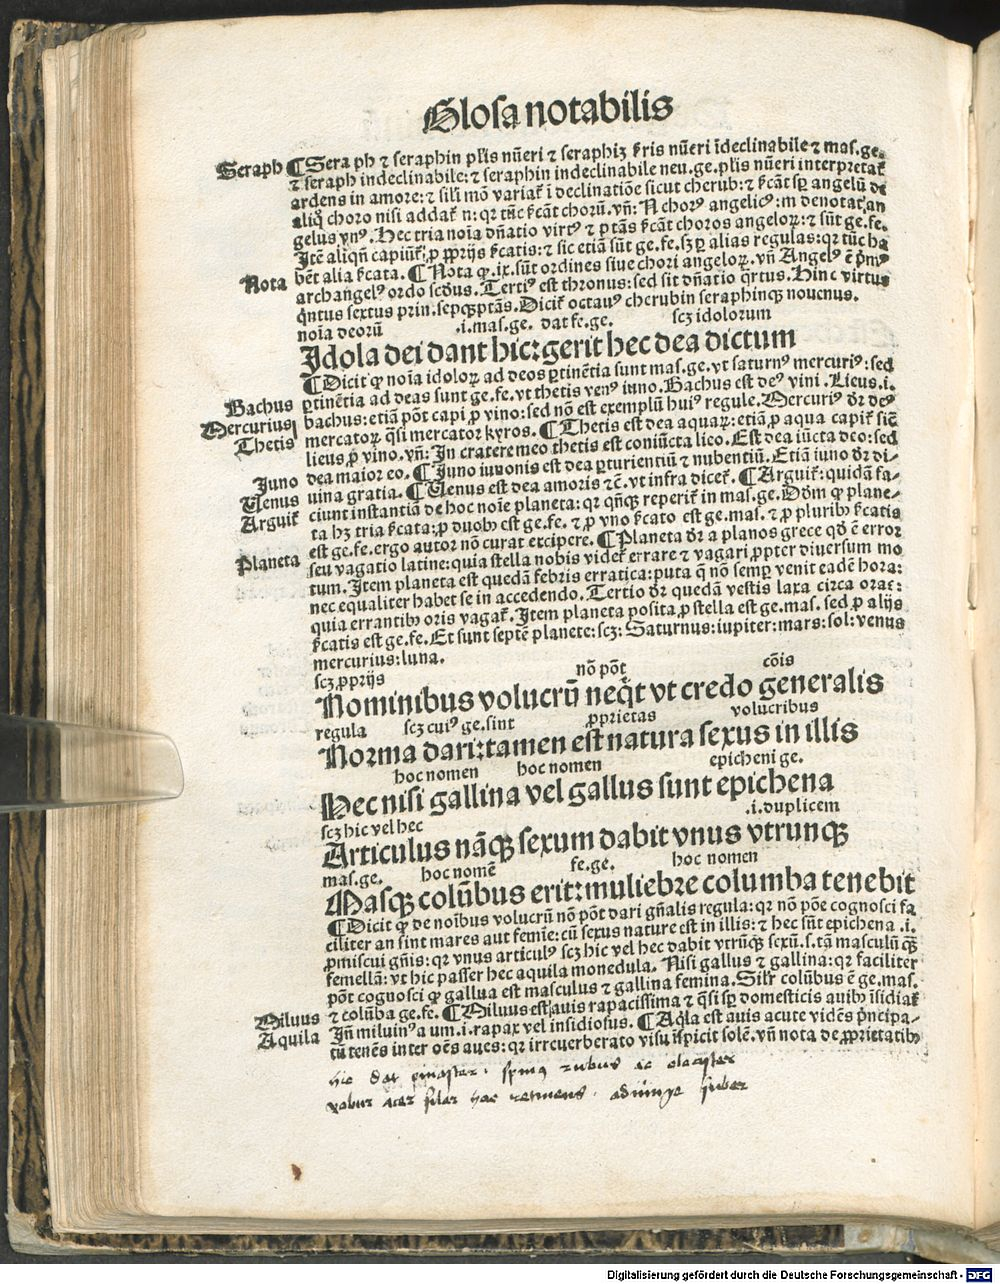 Glosa notabilis
Seraph ¶ Sera ph ⁊ seraphin pl̄is nūeri ⁊ seraphiꝫ ſ̄ris nūeri īdeclinabile ⁊ mas.ge.
⁊ seraph indeclinabile: ⁊ seraphin indeclinabile neu.ge.pl̄is nūeri interpretat᷑
ardens in amore: ⁊ sili mō variat᷑ ī declinatiōe sicut cherub: ⁊ ſ̄cāt sꝑ angelū de
aliq̊ choro nisi addat᷑ n: qꝛ tūc ſ̄cāt chorū. vn̄: N chorꝰ angelicꝰ: m denotat, an
gelus vnꝰ. Hec tria noīa dn̄atio virtꝰ ⁊ ptās ſ̄cāt choros angeloꝝ: ⁊ sūt ge.fe.
Itē aliqn̄ capiūt᷑ ꝓ ꝓprijs ſ̄catis: ⁊ sic etiā sūt ge.fe. sꝫ ꝑ alias regulas: qꝛ tūc ha
Nota bēt alia ſ̄cata. ¶ Nota ꝙ .ix. sūt ordines siue chori angeloꝝ. vn̄ Angelꝰ ē p̄mꝰ
archangelꝰ ordo scdus. Tertiꝰ est thronus: sed sit dn̄atio qrtus. Hinc virtus
qntus sextus prin. sepqꝫptās. Dicit᷑ octauꝰ cherubin seraphinqꝫ nouenus.
noīa deorū .i.mas.ge. dat fe.ge. scꝫ idolorum
Idola dei dant hic: ⁊ gerit hec dea dictum
¶ Dicit ꝙ noīa idoloꝝ ad deos ꝑtinētia sunt mas.ge. vt saturnꝰ mercuriꝰ: sed
Bachus ꝑtinētia ad deas sunt ge.fe. vt thetis venꝰ iuno. Bachus est deꝰ vini .Lieus.i.
Mercurius bachus: etiā pōt capi ꝓ vino: sed nō est exemplū huiꝰ regule. Mercuriꝰ dr̄ deꝰ
Thetis mercatoꝝ q̄si mercator kyros. ¶ Thetis est dea aquaꝝ: etiā ꝓ aqua capit᷑ sic̄
lieus ꝓ vino. vn̄: In cratere meo thetis est coniūcta lico. Est dea iūcta deo: sed
Juno dea maior eo. ¶ Juno iunonis est dea ꝑturientiū ⁊ nubentiū. Etiā iuno dr̄ di-
Uenus uina gratia. ¶ Uenus est dea amoris ⁊c̄. vt infra dicet᷑. ¶ Arguit᷑: quidā fa-
Arguit᷑ ciunt instantiā de hoc noīe planeta: qꝛ qn̄qꝫ reperit᷑ in mas.ge. Dōm ꝙ plane-
ta hꝫ tria ſ̄cata: ꝓ duobꝰ est ge.fe. ⁊ ꝓ vno ſ̄cato est ge.mas. ⁊ ꝓ pluribꝰ ſ̄catis
est ge.fe. ergo autor nō curat excipere. ¶ Planeta dr̄ a planos grece qd̄ ē error
Planeta seu vagatio latine: quia stella nobis videt᷑ errare ⁊ vagari ꝓpter diuersum mo
tum. Item planeta est quedā febris erratica: puta q̄ nō semꝑ venit eadē hora:
nec equaliter habet se in accedendo. Tertio dr̄ quedā vestis laxa circa oras:
quia errantibꝰ oris vagat᷑. Item planeta posita ꝓ stella est ge.mas. sed ꝓ alijs
ſ̄catis est ge.fe. Et sunt septē planete: scꝫ: Saturnus: iupiter: mars: sol: venus
mercurius: luna.
scꝫ ꝓprijs nō pōt cōis
Nominibus volucrū neq̇t vt credo generalis
regula scꝫ cuiꝰ ge.sint ꝓprietas volucribus
Norma dari: ⁊ tamen est natura sexus in illis
hoc nomen hoc nomen epicheni ge.
Nec nisi gallina vel gallus sunt epichena
scꝫ hic vel hec .i.duplicem
Articulus nāqꝫ sexum dabit vnus vtrunqꝫ
mas.ge. hoc nomē fe.ge. hoc nomen
Masqꝫ colūbus erit: ⁊ muliebre columba tenebit
¶ Dicit ꝙ de noībus volucrū nō pōt dari gn̄alis regula: qꝛ nō pōe cognosci fa
ciliter an sint mares aut femīe: cū sexus nature est in illis: ⁊ hec sūt epichena .i.
ꝓmiscui gn̄is: qꝛ vnus articulꝰ scꝫ hic vel hec dabit vtrūqꝫ sexū. s. tā masculū qꝫ
femellā: vt hic passer hec aquila monedula. Nisi gallus ⁊ gallina: qꝛ faciliter
pōt cognosci ꝙ gallua est masculus ⁊ gallina femina. Silr̄ colūbus ē ge.mas.
Miluus ⁊ colūba ge.fe. ¶ Miluus est auis rapacissima ⁊ q̄si sꝑ domesticis auibꝰ īsidiat᷑
Aquila Jn̄ miluinꝰ a um .i.rapax vel insidiosus. ¶ Aq̄la est auis acute vidēs p̄ncipa-
tū tenēs inter oēs aues: qꝛ irreuerberato visu īspicit solē. vn̄ nota de ꝓprietatibꝰ
hic dat pinaster